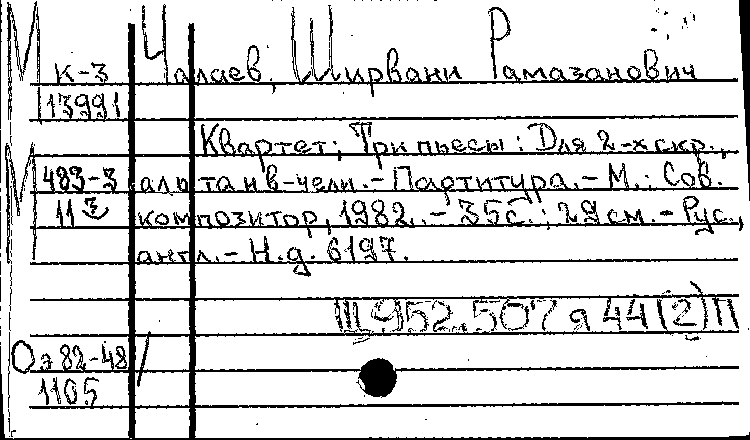 М К-3 Чалаев, Ширвани Рамазанович
13991
Квартет; Три пьесы: Для 2-х скр.,
М 483-3 альта и в-чели. - Партитура. - М.: Сов.
11 композитор, 1982. - 35с.; 29см. - Рус.,
англ. - Н.д. 6197.
Щ952.507я44(2)П
О э 82-48/
1105